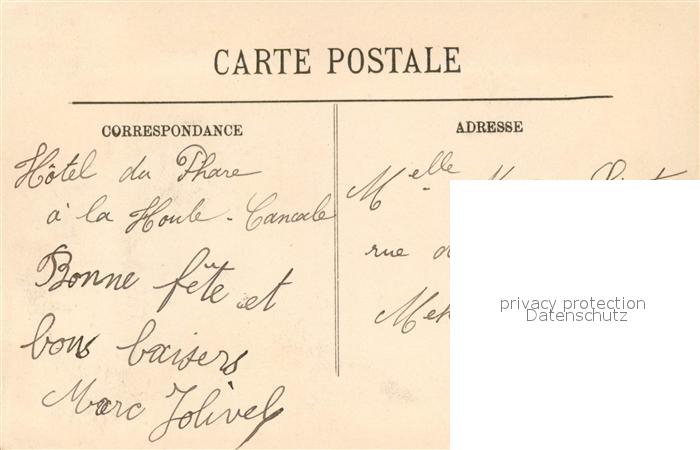 CARTE POSTALE
CORRESPONDANCE
ADRESSE
Hôtel du Phare
à la Houle - Cancale
Bonne fête et
bons baisers
Marc Jolivel
Melle
rue
privacy protection
Datenschutz